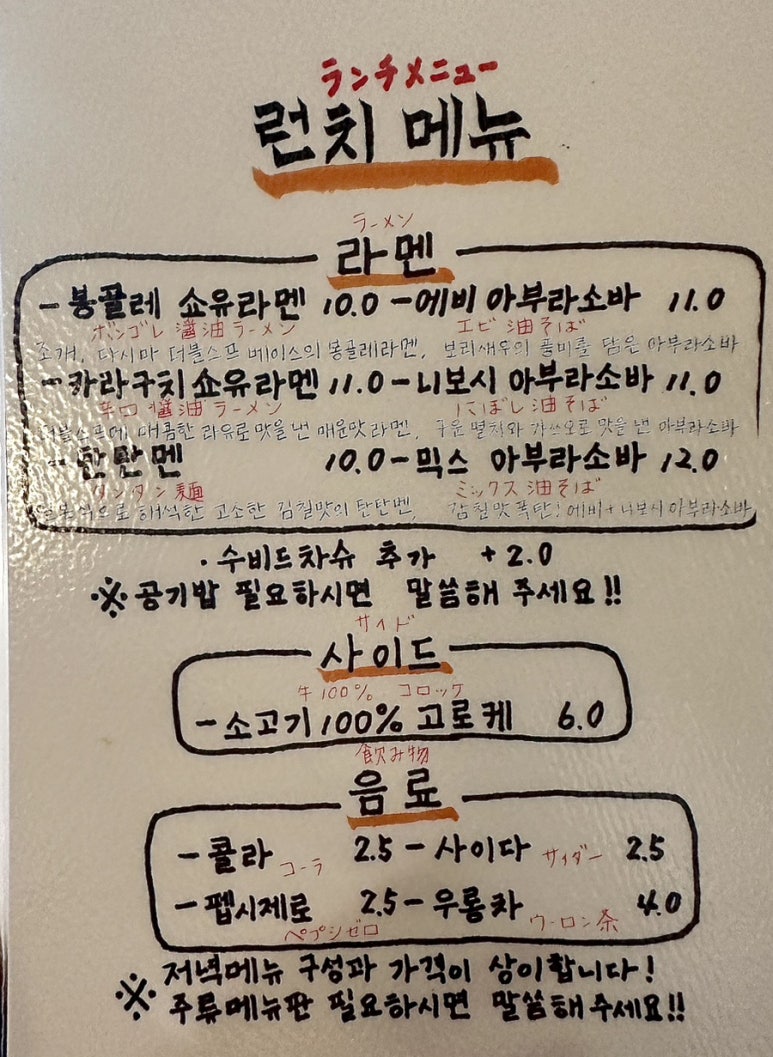 ランチメニュー
런치 메뉴
ラーメン
라멘
-봉골레 쇼유라멘 10.0 -에비 아부라소바 11.0
ボンゴレ 醤油 ラーメン エビ 油そば
조개, 다시마 더블스프 베이스의 봉골레라멘, 보리새우의 풍미를 담은 아부라소바
-카라구치 쇼유라멘 11.0 -니보시 아부라소바 11.0
辛口 醤油 ラーメン にぼし 油そば
더블스프에 매콤한 라유로 맛을 낸 매운맛 라멘, 구운 멸치와 가쓰오로 맛을 낸 아부라소바
-탄탄멘 10.0 -믹스 아부라소바 12.0
タンタン麺 ミックス 油そば
해석한 고소한 감칠맛의 탄탄멘, 감칠맛 폭탄! 에비+니보시 아부라소바
·수비드차슈 추가 +2.0
※공기밥 필요하시면 말씀해 주세요!!
サイド
사이드
牛100% コロッケ
-소고기 100% 고로케 6.0
飲み物
음료
-콜라 コーラ 2.5 -사이다 サイダー 2.5
-펩시제로 2.5 -우롱차 4.0
ペプシゼロ ウーロン茶
※ 저녁메뉴 구성과 가격이 상이합니다!
주류메뉴판 필요하시면 말씀해주세요!!